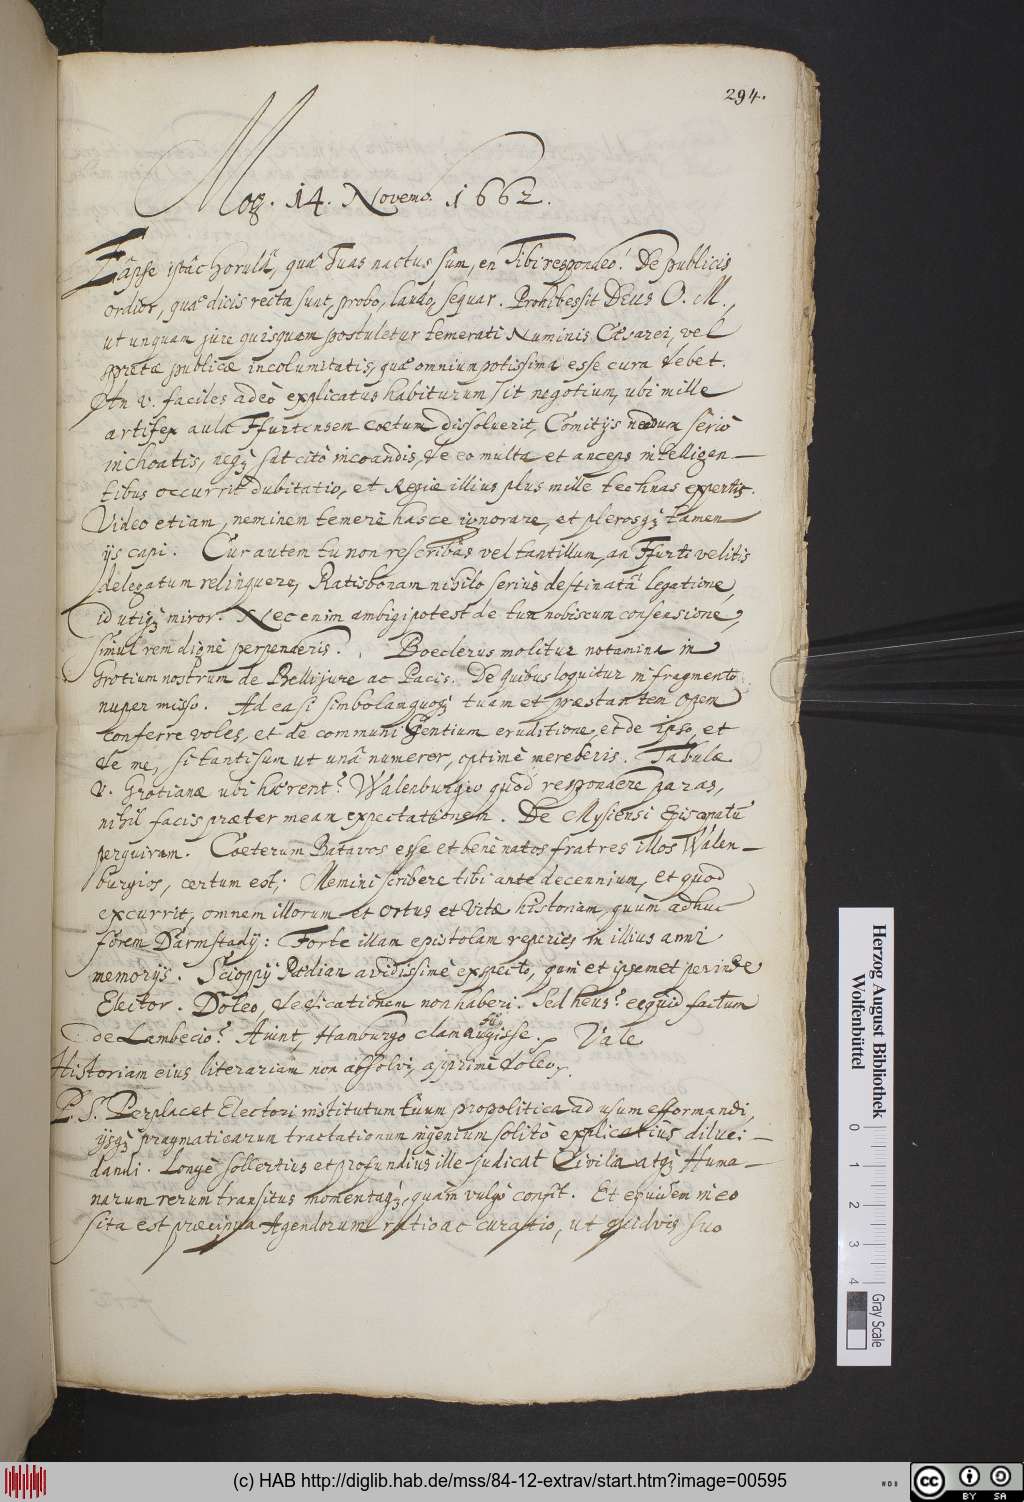 294.
Mog. 14. Novemb. 1662.
Eâpse istâc horulâ, quâ Tuas nactus sum, en Tibi respondeo! De publicis
ordior, quae dicis recta sunt, probo, laudo, sequar. Prohibessit Deus O. M.,
ut unquam jure quisquam postuletur temerati Numinis Caesarei, vel
spretae publicae incolumitatis, quae omnium potissima esse cura debet.
An v. faciles adeò explicatus habiturum sit negotium, ubi mille
artifex aula Ffurtensem coetum dissoluerit, Comitijs nedum seriò
inchoatis, neqȝ sat citò incoandis, de eo multa et anceps intelligen-
tibus occurrit dubitatio, et Regiae illius plus mille technas expertis.
Video etiam, neminem temerè hasce ignorare, et plerosqȝ tamen
ijs capi. Cur autem tu non rescribas vel tantillum, an Ffurti velitis
delegatum relinquere, Ratisbonam nihilo serius destinatâ legatione,
id utiqȝ miror. Nec enim ambigi potest de tua nobiscum consensione,
simul rem dignè perpenderis. Boeclerus molitur notamina in
Grotium nostrum de Belli jure ac Pacis. De quibus loquitur in fragmento
nuper misso. Ad ea si simbolam quoqȝ tuam et praestantem opem
conferre voles, et de communi Gentium eruditione, et de ipso, et
de me, si tantisum ut unâ numerer, optimè mereberis. Tabulae
v. Grotianae ubi haerent? Walenburgio quòd respondere paras,
nihil facis praeter meam expectationem. De Mysiensi Episcopatu
perquiram. Coeterum Batavos esse et benè natos fratres illos Walen-
burgios, certum est; Memini scribere tibi ante decennium, et quod
excurrit, omnem illorum et ortus et vitae historiam, quum adhuc
forem Darmstadij: Forte illam epistolam reperies in illius anni
memorijs. Scioppij Paedian avidissimè exspecto, quin et ipsemet perinde
Elector. Doleo, dedicationem non haberi. Sed heus? ecquid factum
de Lambecio? Aiunt, Hamburgo clam aufugisse. Vale
Historiam eius literariam non absolvi, apprimè doleo.
P. S. Perplacet Electori institutum tuum propolitica ad usum efformandi,
ijsqȝ pragmaticarum tractationum ingenium solitò explicatius diluci-
dandi. Longè sollertius et profundiùs ille judicat Civilia atqȝ Huma-
narum rerum transitus momentaqȝ, quàm vulgò consit. Et equidem in eo
sita est praecipua Agendorum ratio ac curatio, ut quidvis suo
Herzog August Bibliothek
Wolfenbüttel
0 1 2 3 4
Gray Scale
(c) HAB http://diglib.hab.de/mss/84-12-extrav/start.htm?image=00595
cc BY SA